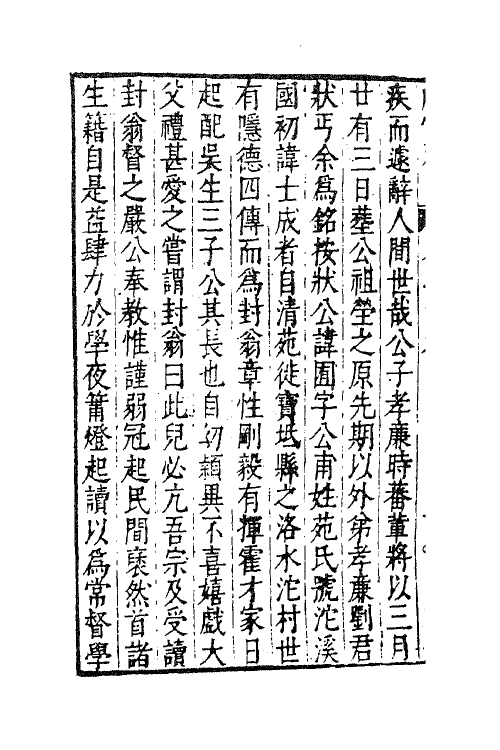 疾而遽辭人間世哉公子孝廉時蕃董將以三月
廿有三日塟公祖塋之原先期以外弟孝廉劉君
狀丐余爲銘按狀公諱囿字公甫姓苑氏號沱溪
國初諱士成者自清苑徙寶坻縣之洛水沱村世
有隱德四傳而爲封翁章性剛毅有揮霍才家日
起配吳生三子公其長也自初穎異不喜嬉戲大
父禮甚愛之嘗謂封翁曰此兒必亢吾宗及受讀
封翁督之嚴公奉教惟謹弱冠起民間裒然首諸
生籍自是益肆力於學夜篝燈起讀以爲常督學